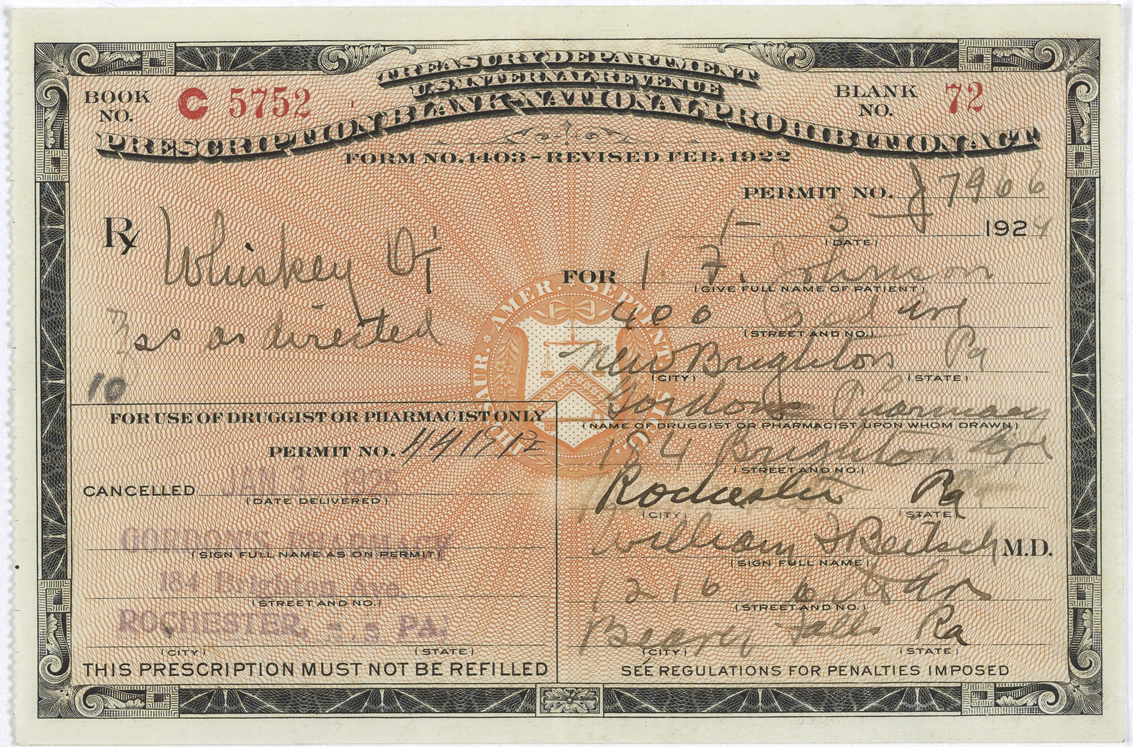 TREASURY DEPARTMENT
U.S. INTERNAL REVENUE
BOOK NO. C 5752
BLANK NO. 72
PRESCRIPTION BLANK-NATIONAL PROHIBITION ACT
FORM NO. 1403 - REVISED FEB. 1922
PERMIT NO. 7966
1 - 3 1924
(DATE)
Rx Whiskey
FOR 1. F. Johnson
(GIVE FULL NAME OF PATIENT)
400 3rd Ave
(STREET AND NO.)
ss as directed
New Brighton Pa
(CITY) (STATE)
10
Gordons Pharmacy
(NAME OF DRUGGIST OR PHARMACIST UPON WHOM DRAWN)
184 Brighton Ave
(STREET AND NO.)
Rochester Pa
(CITY) (STATE)
William J Beitsch M.D.
(SIGN FULL NAME)
1216 6th Av
(STREET AND NO.)
Beaver Falls Pa
(CITY) (STATE)
SEE REGULATIONS FOR PENALTIES IMPOSED
FOR USE OF DRUGGIST OR PHARMACIST ONLY
PERMIT NO.
CANCELLED JAN
(DATE DELIVERED)
GORDON'S PHARMACY
(SIGN FULL NAME AS ON PERMIT)
184 Brighton Ave.
(STREET AND NO.)
ROCHESTER, - - PA.
(CITY) (STATE)
THIS PRESCRIPTION MUST NOT BE REFILLED
THESAUR. AMER. SEPTENT. SIGIL.